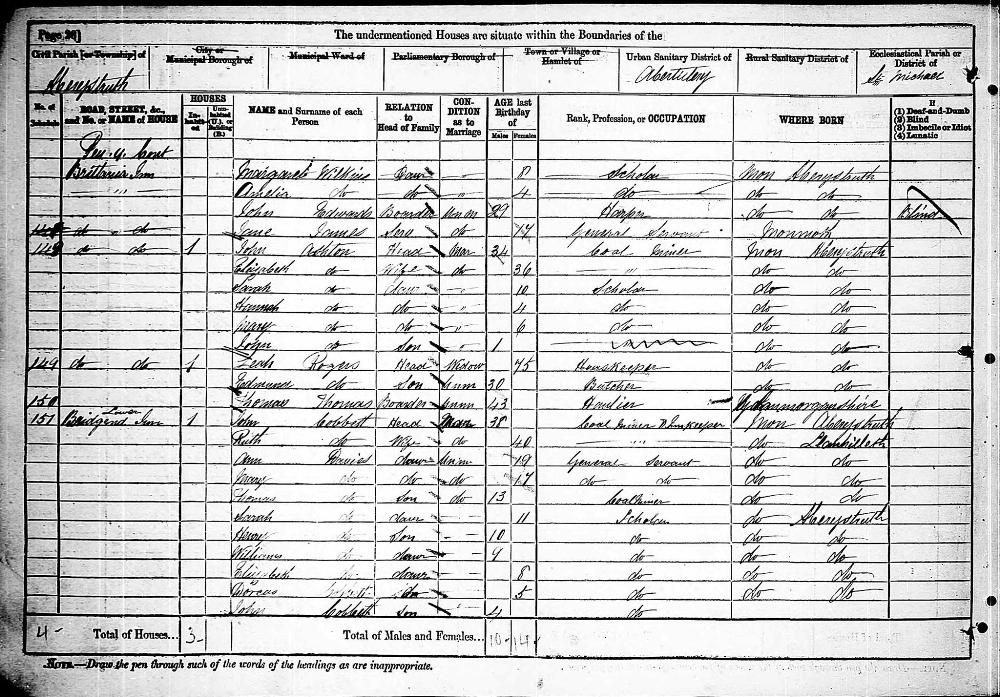 Page 26] The undermentioned Houses are situate within the Boundaries of the
Civil Parish [or Township] of City or Municipal Borough of Municipal Ward of Parliamentary Borough of Town or Village or Hamlet of Urban Sanitary District of Rural Sanitary District of Ecclesiastical Parish or District of
Aberystruth Abertillery St Michael
No. of Schedule ROAD, STREET, &c., and No. or NAME of HOUSE HOUSES Inhabited Uninhabited (U.), or Building (B.) NAME and Surname of each Person RELATION to Head of Family CONDITION as to Marriage AGE last Birthday of Males Females Rank, Profession, or OCCUPATION WHERE BORN If (1) Deaf-and-Dumb (2) Blind (3) Imbecile or Idiot (4) Lunatic
Pen y bont
Brittania Inn Margaret Wilkins Daur " 8 Scholar Mon Aberystruth
" Amelia do do " 4 do do do
John Edwards Boarder Unm 29 Harper do do Blind
do do Jane James Serv do 17 General Servant Monmouth
148 do do 1 John Ashton Head Mar 34 Coal Miner Mon Aberystruth
Elizabeth do Wife do 36 " do do
Sarah do daur " 10 Scholar do do
Hannah do do " 4 do do do
Mary do do " 6 do do do
John do Son " 1 do do
149 do do 1 Leah Rogers Head Widow 75 Housekeeper do do
Edmund do Son Unm 30 Butcher do do
150 Thomas Thomas Boarder Unm 43 Haulier Glanmorganshire
151 Lower Bridgend Inn 1 John Cobbett Head Mar 38 Coal Miner & Innkeeper Mon Aberystruth
Ruth do Wife do 40 " do Llanhilleth
Ann Davies daur Unm 19 General Servant do do
Mary do do do 17 do do do do
Thomas do Son do 13 Coalminer do do
Sarah do daur 11 Scholar do Aberystruth
Henry do Son - - 10 do do do
Williams do daur - - 9 do do do
Elizabeth daur 8 do do do
Dorcas 5 do do do
John Cobbett Son 4 do
4 - Total of Houses... 3 - Total of Males and Females... 10 - 14
NOTE.—Draw the pen through such of the words of the headings as are inappropriate.